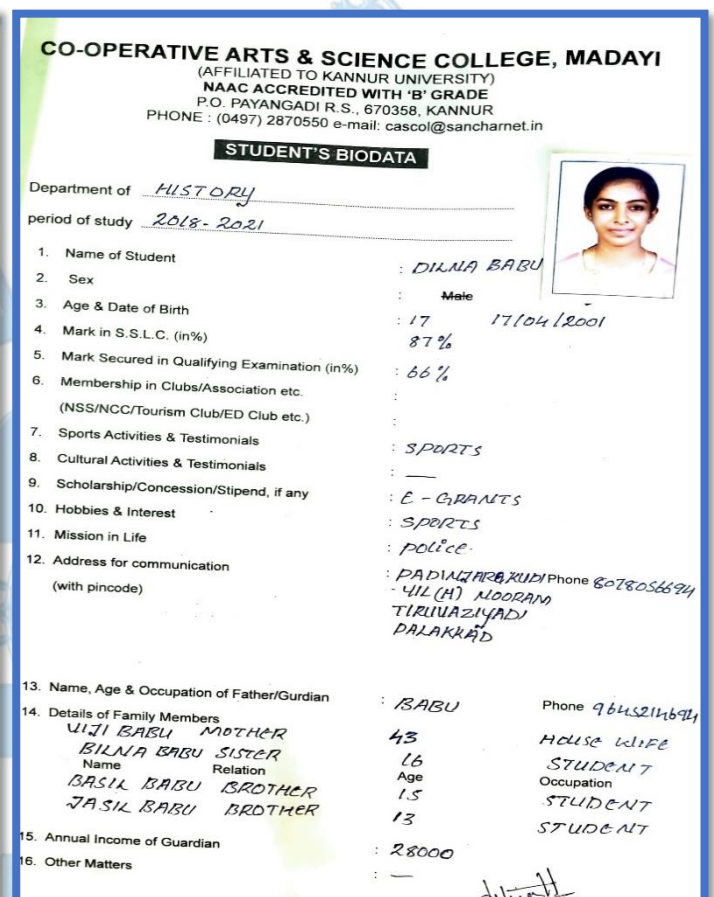 CO-OPERATIVE ARTS & SCIENCE COLLEGE, MADAYI
(AFFILIATED TO KANNUR UNIVERSITY)
NAAC ACCREDITED WITH 'B' GRADE
P.O. PAYANGADI R.S., 670358, KANNUR
PHONE : (0497) 2870550 e-mail: cascol@sancharnet.in
STUDENT'S BIODATA
Department of HISTORY
period of study 2018-2021
1. Name of Student : DILNA BABU
2. Sex : Male
3. Age & Date of Birth : 17 17/04/2001
4. Mark in S.S.L.C. (in%) 87%
5. Mark Secured in Qualifying Examination (in%) : 66%
6. Membership in Clubs/Association etc. :
(NSS/NCC/Tourism Club/ED Club etc.) :
7. Sports Activities & Testimonials : SPORTS
8. Cultural Activities & Testimonials : —
9. Scholarship/Concession/Stipend, if any : E-GRANTS
10. Hobbies & Interest : SPORTS
11. Mission in Life : police.
12. Address for communication : PADINJAREKUDI Phone 8078056694
(with pincode) -YIL (H) MOORAM
TIRUVAZIYADI
PALAKKAD
13. Name, Age & Occupation of Father/Gurdian : BABU Phone
14. Details of Family Members
VIJI BABU MOTHER 43 HOUSE WIFE
BILNA BABU SISTER 16 STUDENT
Name Relation Age Occupation
BASIL BABU BROTHER 15 STUDENT
JASIL BABU BROTHER 13 STUDENT
15. Annual Income of Guardian : 28000
16. Other Matters : —